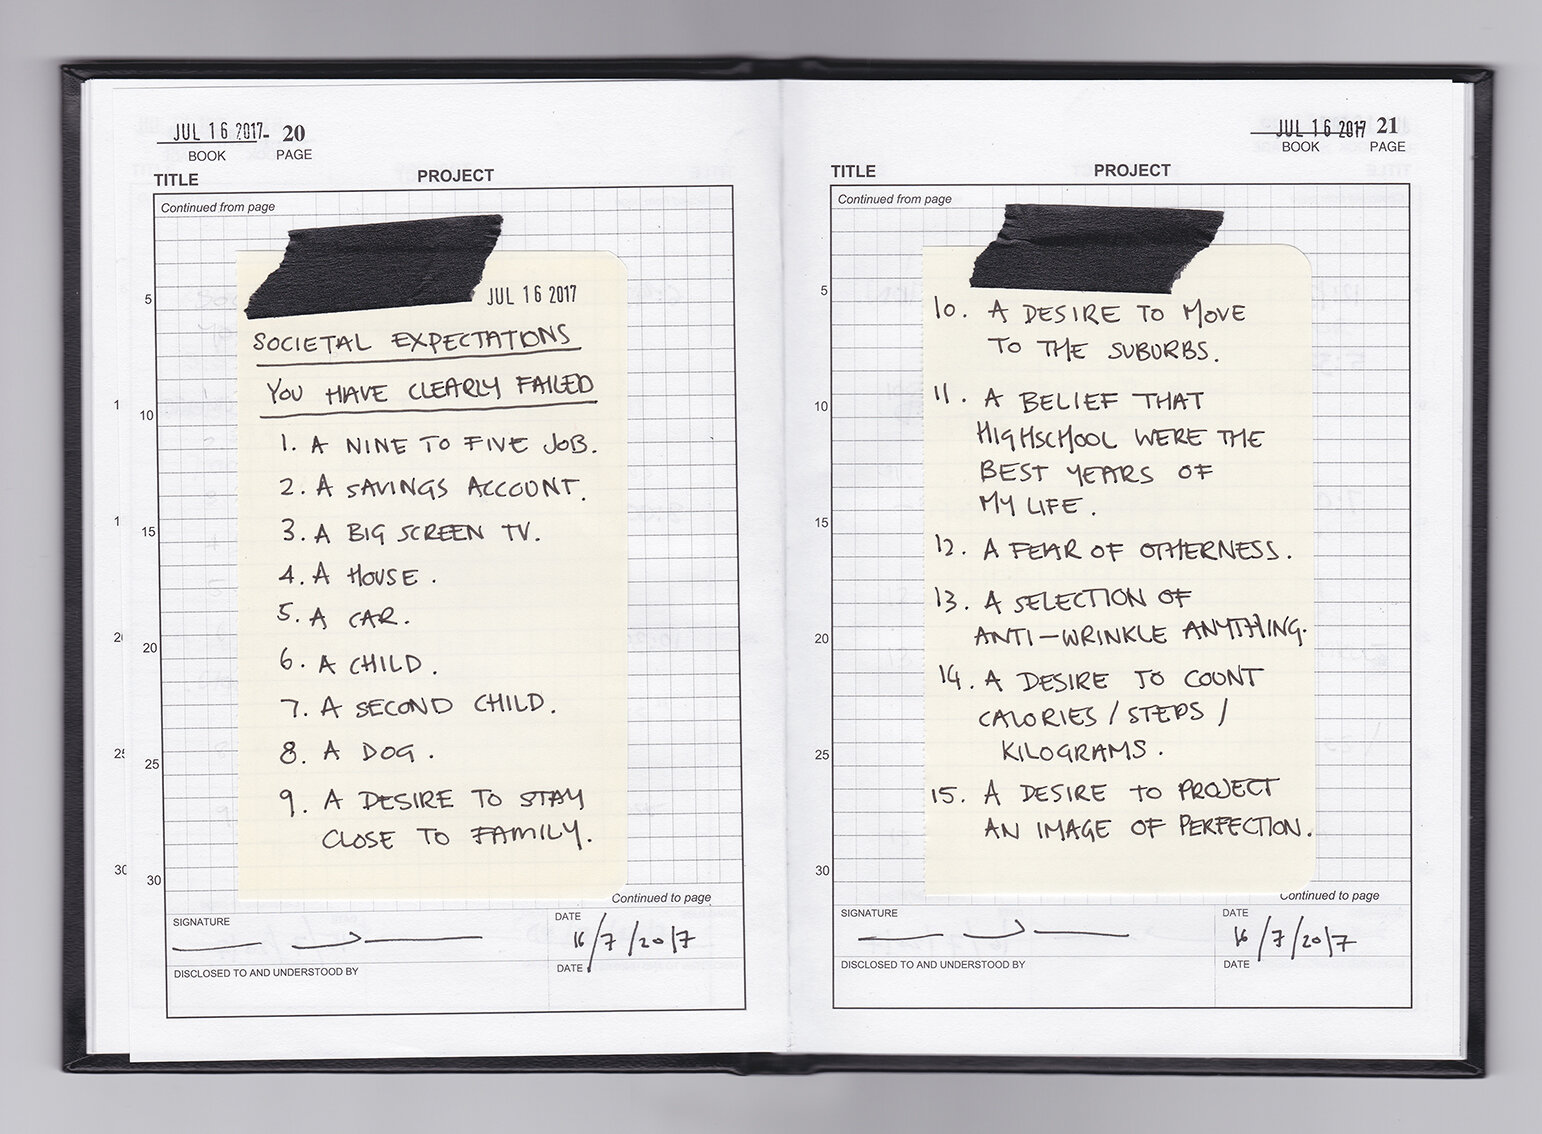 JUL 16 2017- 20
BOOK PAGE
TITLE PROJECT
Continued from page
JUL 16 2017
SOCIETAL EXPECTATIONS
YOU HAVE CLEARLY FAILED
1. A NINE TO FIVE JOB.
2. A SAVINGS ACCOUNT.
3. A BIG SCREEN TV.
4. A HOUSE.
5. A CAR.
6. A CHILD.
7. A SECOND CHILD.
8. A DOG.
9. A DESIRE TO STAY
CLOSE TO FAMILY.
5
10
15
20
25
30
Continued to page
SIGNATURE DATE
16/7/2017
DISCLOSED TO AND UNDERSTOOD BY DATE
JUL 16 2017 21
BOOK PAGE
TITLE PROJECT
Continued from page
10. A DESIRE TO MOVE
TO THE SUBURBS.
11. A BELIEF THAT
HIGHSCHOOL WERE THE
BEST YEARS OF
MY LIFE.
12. A FEAR OF OTHERNESS.
13. A SELECTION OF
ANTI-WRINKLE ANYTHING.
14. A DESIRE TO COUNT
CALORIES / STEPS /
KILOGRAMS.
15. A DESIRE TO PROJECT
AN IMAGE OF PERFECTION.
5
10
15
20
25
30
Continued to page
SIGNATURE DATE
16/7/2017
DISCLOSED TO AND UNDERSTOOD BY DATE